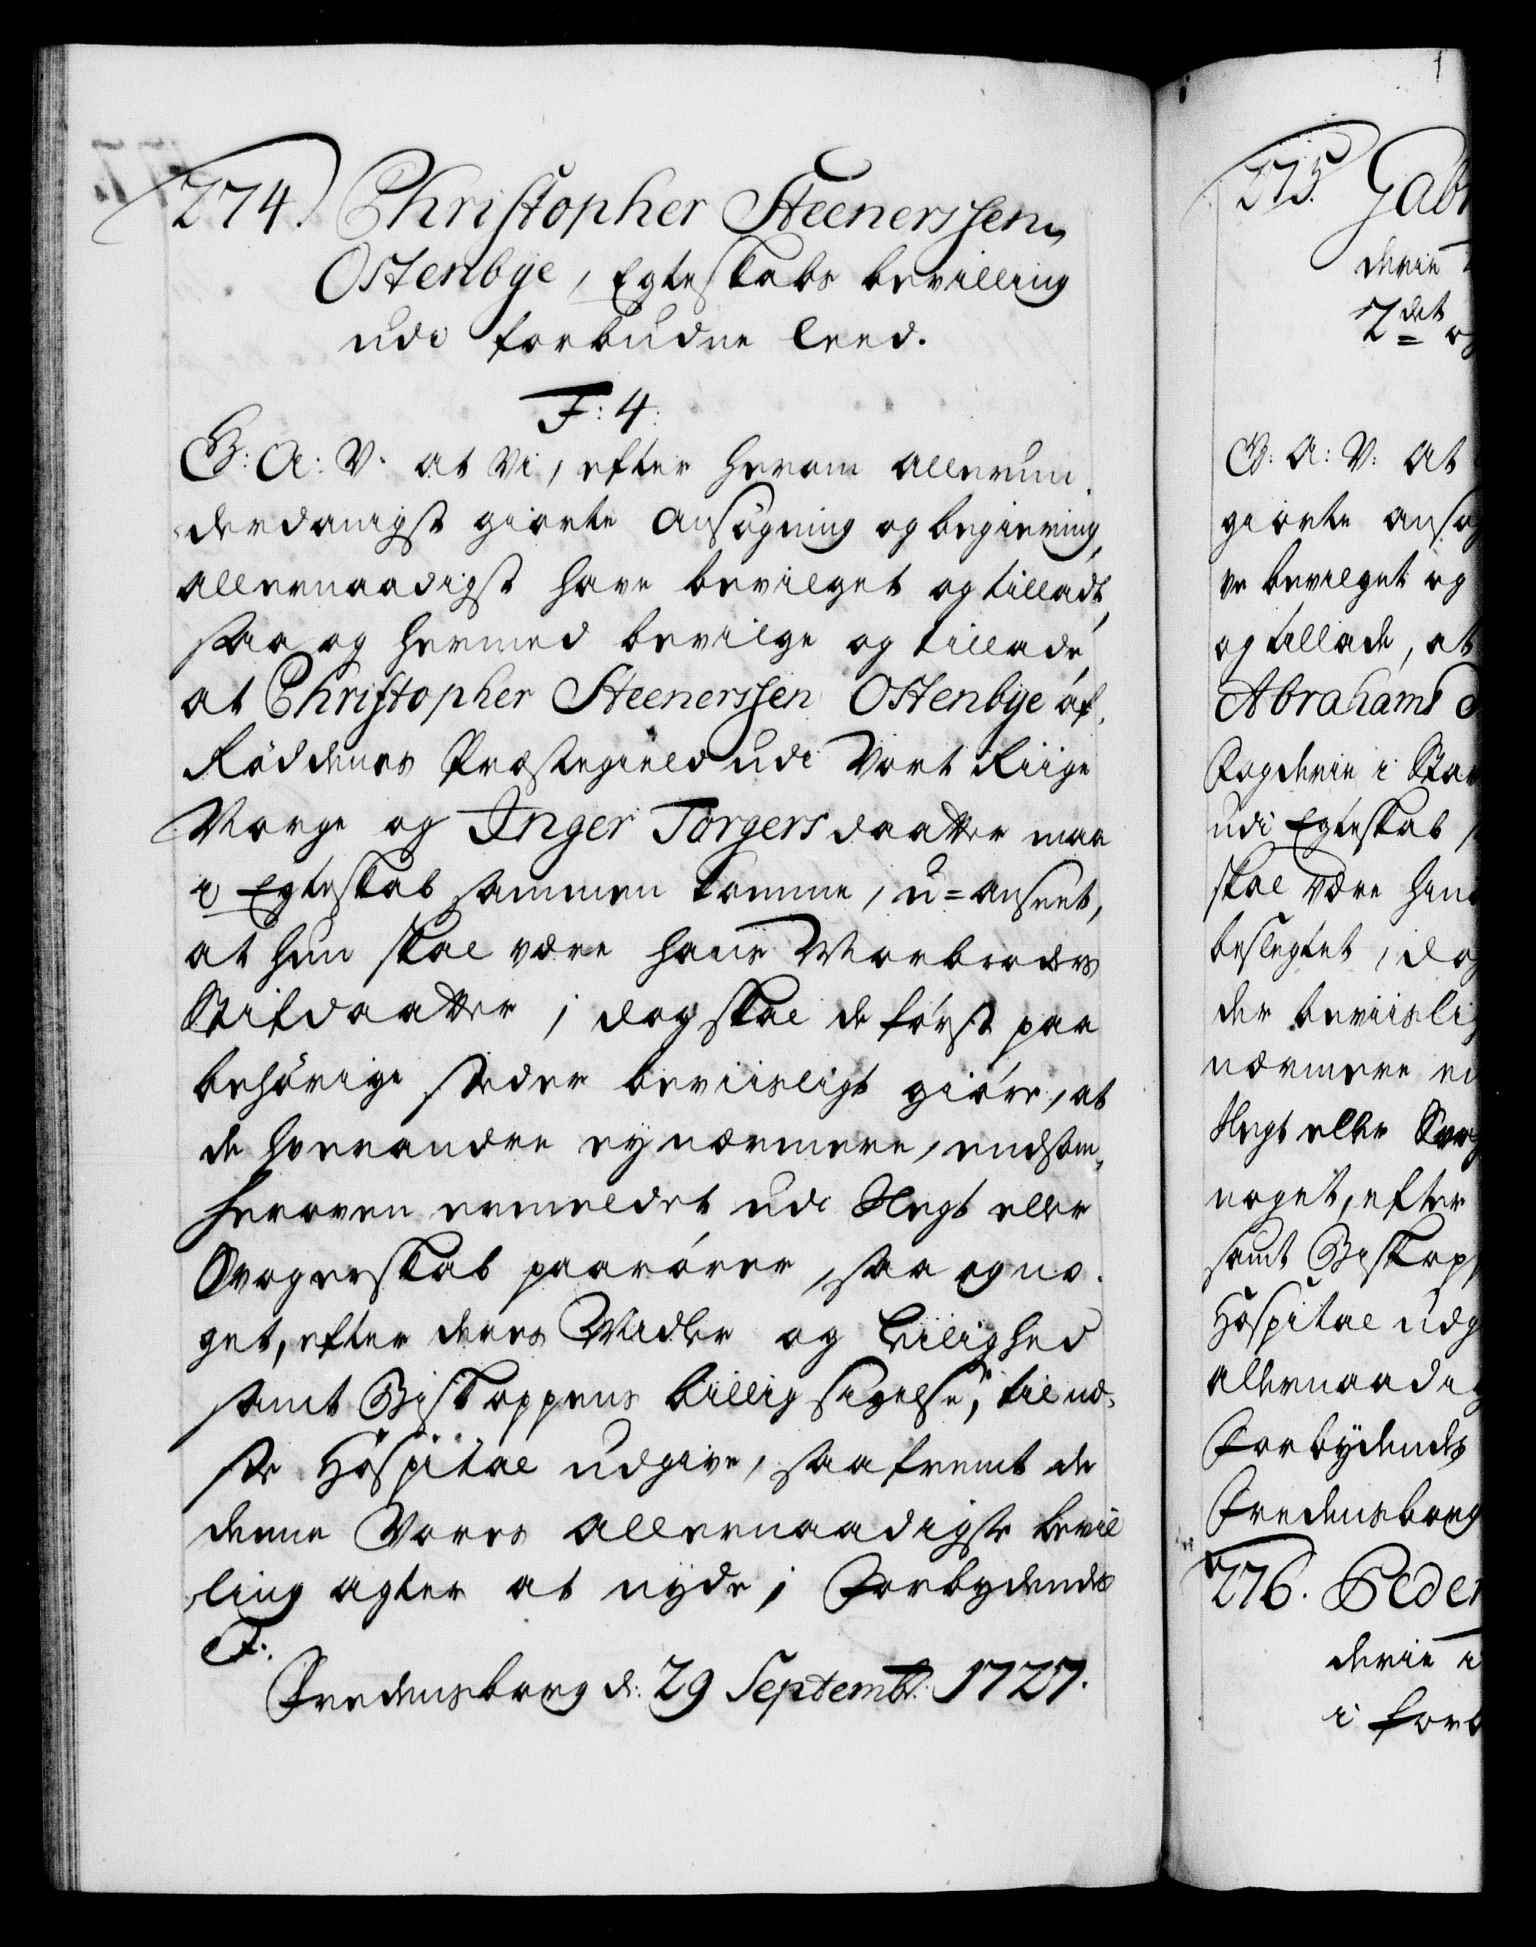 274. Christopher Steenerssen
Ostenbye, Egteskabs bevilling
udi forbudne Leed.
F: 4.
G: A: V. at Vi, efter herom allerun
derdanigst giorte Ansøgning og begiering,
allernaadigst have bevilget og tilladt,
saa og hermed bevilge og tillade,
at Christopher Steenerssen Ostenbye af
Røddenes Præstegield udi Vort Riige
Norge og Inger Torgersdaatter maa
i Egteskab sammen komme, u=anseet,
at hun skal være hans Morbroders
Stifdaatter; dog skal de først paa
behørige steder beviisligt giøre, at
de hverandre ey nærmere, end som
heroven ermeldet udi Slegt eller
Svogerskab paarører, saa og no-
get, efter deres Midler og Leilighed
samt Biskoppens billig sigelse, til næ-
ste Hospital udgive, saafremt de
denne Vores allernaadigste bevil
ling agter at nyde; Forbydendes
F:.
Fredensborg d: 29 Septembr: 1727.
275. Gabr
derie
2det og
G: A: V: At
giorte ansøg
ve bevilget og
og tillade, at
Abrahams
Fogderie i Stav
udi Egteskab
skal være hans
beslegtet, dog
der beviislig
nærmere en
Slegt eller Svog
noget, efter
samt Biskop
Hospital udg
allernaadig
Forbydendes
Fredensborg
276. Peder
derie i
i forb